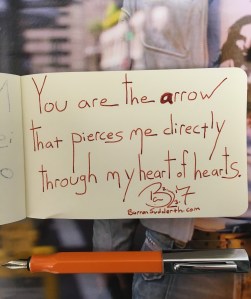 You are the arrow
that pierces me directly
through my heart of hearts.
BarronSuddarth.com